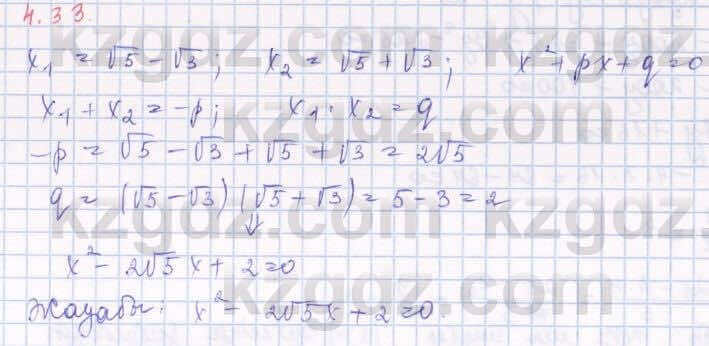 4.33
x₁ = √5 - √3; x₂ = √5 + √3; x² + px + q = 0
x₁ + x₂ = -p; x₁ · x₂ = q
-p = √5 - √3 + √5 + √3 = 2√5
q = (√5 - √3)(√5 + √3) = 5 - 3 = 2
⇓
x² - 2√5 x + 2 = 0
Жауабы: x² - 2√5 x + 2 = 0.
kzgdz.com